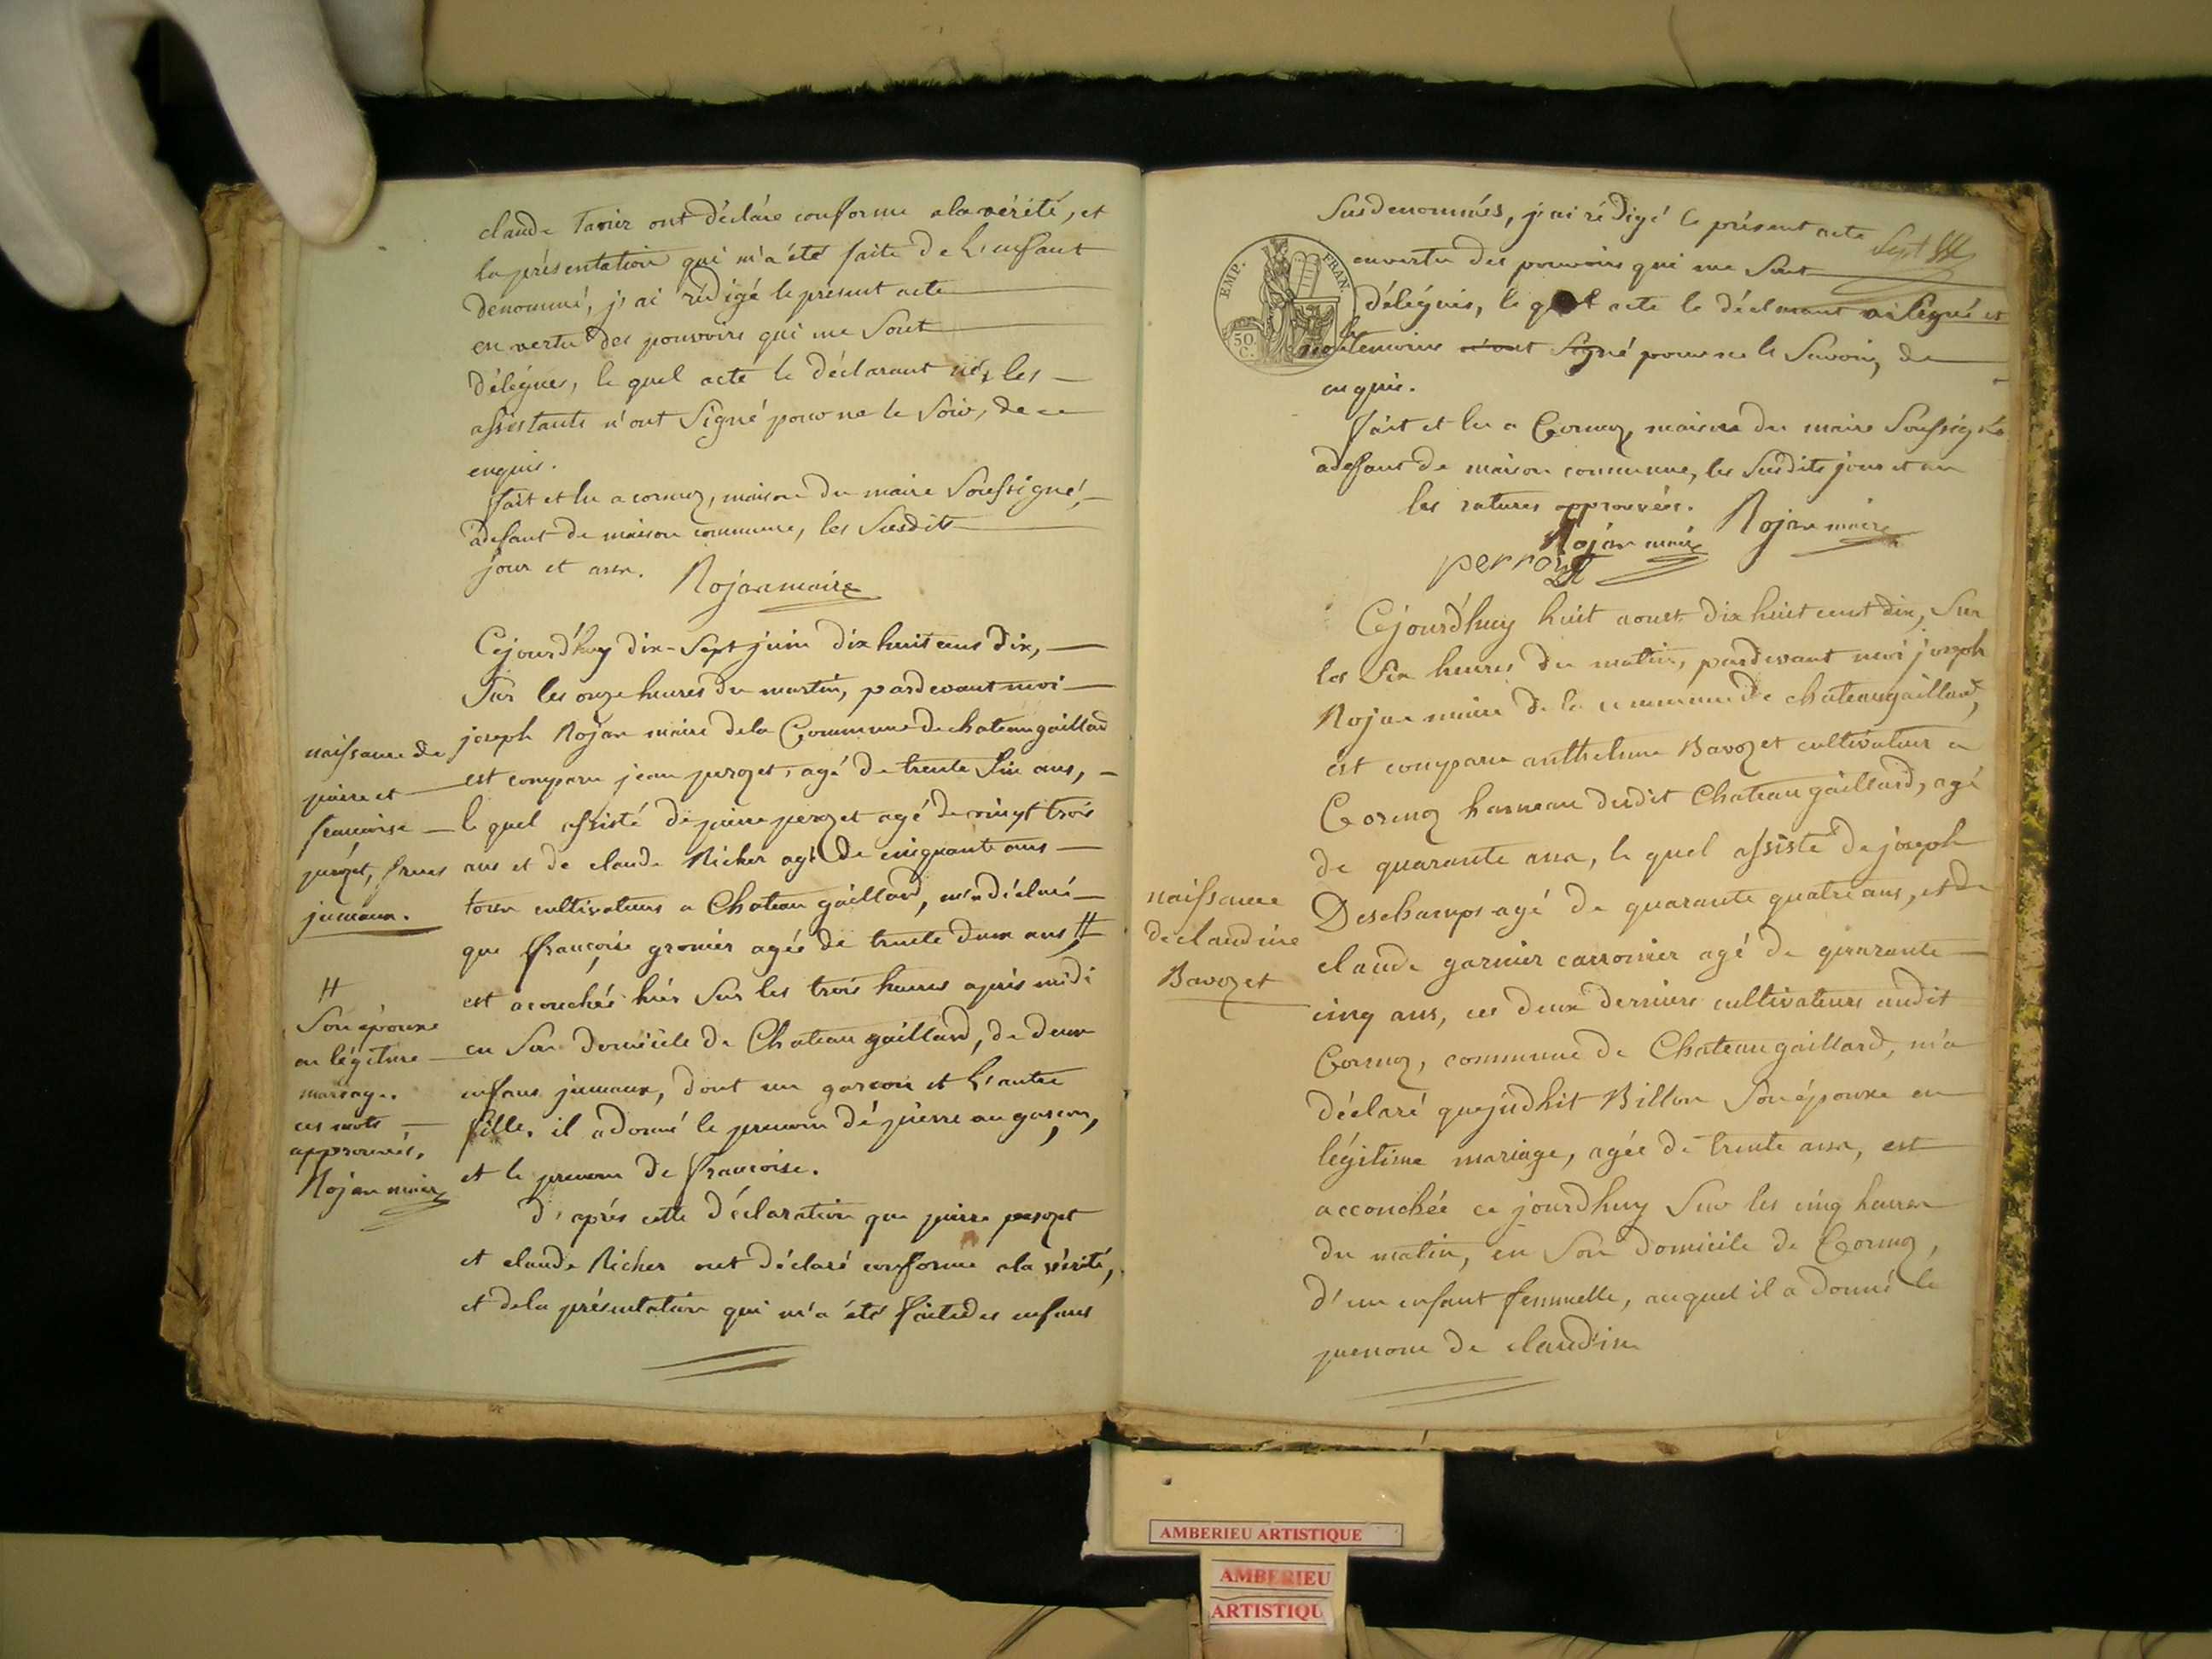 claude Tavier ont déclaré conforme a la vérité, et
la présentation qui m'a été faite de l'enfant
denommé, j'ai rédigé le présent acte
en vertu des pouvoirs qui me sont
délégués, le quel acte le déclarant les
assistants n'ont signé pour ne le
enquis.
fait et lu a cormoz, maison du maire soussigné,
adefaut de maison commune, les susdits
jour et an.
Rojan maire
Cejourd'huy dix-sept juin dix huit cent dix,
sur les onze heures du martin, pardevant moi
joseph Rojan maire dela Commune de chateaugaillard
est comparu jean perozet, agé de trente six ans,
le quel assisté de pierre perozet agé de vingt trois
ans et de claude Richer agé de cinquante ans
tous cultivateurs a Chateau gaillard, m'a déclaré
que françoise gronier agée de trente deux ans #
est acouchée hier sur les trois heures après midi
en son domicile de Chateau gaillard, de deux
enfans jumeaux, dont un garcon et l'autre
fille. il a donné le prenom de pierre au garçon,
et le prenom de francoise.
d'après cette déclaration que pierre perozet
et claude Richer ont déclaré conforme a la vérité,
et de la présentation qui m'a été faite des enfans
naissance de
pierre et
francoise
perozet, freres
jumeaux.
#
son épouse
en légitime
mariage.
ces mots
approuvés.
Rojan maire
susdenommés, j'ai rédigé le présent acte
en vertu des pouvoirs qui me sont
délégués, le quel acte le déclarant a signé et
les temoins n'ont signé pour ne le savoir, de
enquis.
fait et lu a Cormoz, maison du maire soussigné
adefaut de maison commune, les susdits jour et an
les ratures approuvées.
Rojan maire
Rojan maire
perrozet
EMP. FRAN.
50 C.
Cejourd'huy huit aoust dix huit cent dix, sur
les six heures du matin, pardevant moi joseph
Rojan maire de la commune de chateaugaillard,
est comparu anthelme Bavozet cultivateur a
Cormoz hameau dudit Chateau gaillard, agé
de quarante ans, le quel assisté de joseph
Deschamps agé de quarante quatre ans, et de
claude garnier agé de quarante
cinq ans, ces deux derniers cultivateurs audit
Cormoz, commune de Chateau gaillard, m'a
déclaré que judhit Billon son épouse en
légitime mariage, agée de trente ans, est
accouchée ce jourd'huy sur les cinq heures
du matin, en son domicile de Cormoz,
d'un enfant femmelle, auquel il a donné le
prenom de claudine
naissance
de claudine
Bavozet
AMBERIEU ARTISTIQUE
AMBERIEU
ARTISTIQU